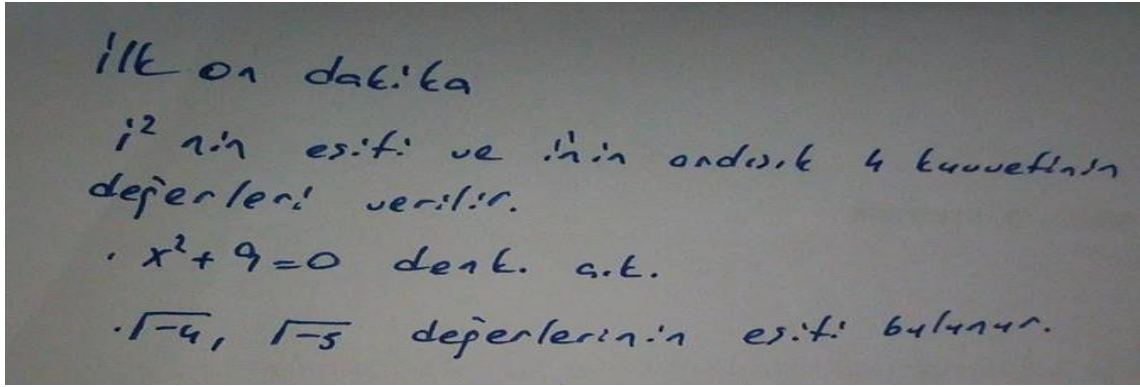 ilk on dakika
i² nin eşiti ve i'nin ardışık 4 kuvvetinin
değerleri verilir.
. x²+9=0 denk. ç.k.
. √-4, √-5 değerlerinin eşiti bulunur.